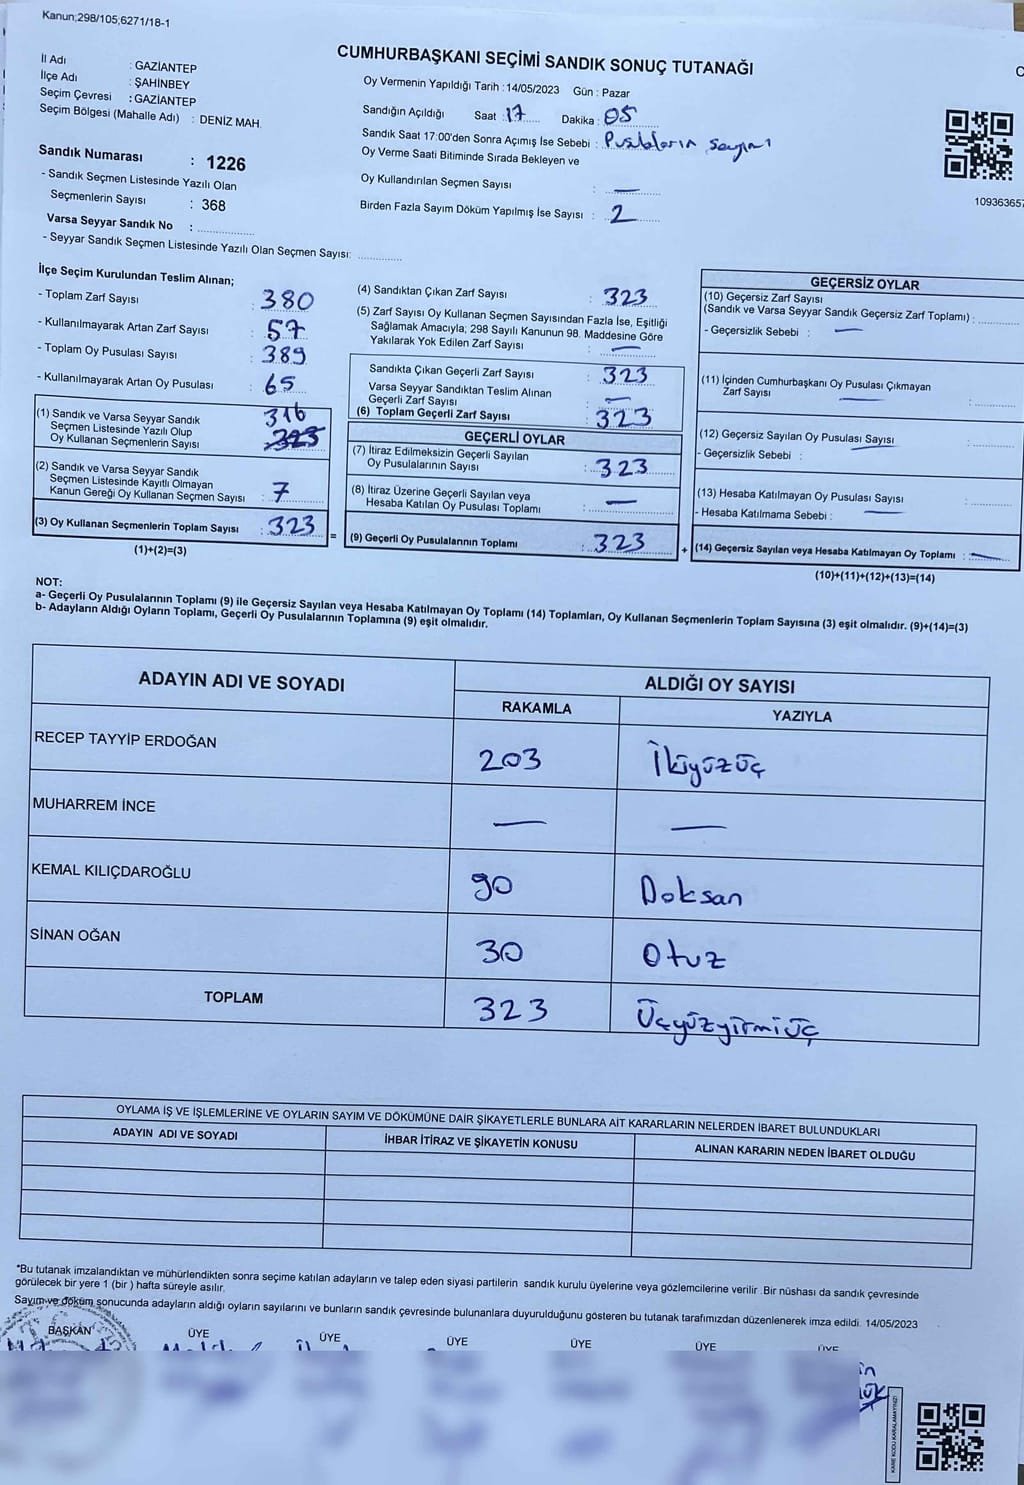 Kanun;298/105;6271/18-1
CUMHURBAŞKANI SEÇİMİ SANDIK SONUÇ TUTANAĞI
İl Adı : GAZİANTEP
İlçe Adı : ŞAHİNBEY
Seçim Çevresi : GAZİANTEP
Seçim Bölgesi (Mahalle Adı) : DENİZ MAH.
Sandık Numarası : 1226
- Sandık Seçmen Listesinde Yazılı Olan
Seçmenlerin Sayısı : 368
Varsa Seyyar Sandık No :
- Seyyar Sandık Seçmen Listesinde Yazılı Olan Seçmen Sayısı:
Oy Vermenin Yapıldığı Tarih : 14/05/2023 Gün : Pazar
Sandığın Açıldığı Saat : 17 Dakika : 05
Sandık Saat 17:00'den Sonra Açımış İse Sebebi : Pusulaların sayımı
Oy Verme Saati Bitiminde Sırada Bekleyen ve
Oy Kullandırılan Seçmen Sayısı : —
Birden Fazla Sayım Döküm Yapılmış İse Sayısı : 2
10936365
İlçe Seçim Kurulundan Teslim Alınan;
- Toplam Zarf Sayısı : 380
- Kullanılmayarak Artan Zarf Sayısı : 57
- Toplam Oy Pusulası Sayısı : 389
- Kullanılmayarak Artan Oy Pusulası : 65
(1) Sandık ve Varsa Seyyar Sandık 316
Seçmen Listesinde Yazılı Olup
Oy Kullanan Seçmenlerin Sayısı : 323
(2) Sandık ve Varsa Seyyar Sandık
Seçmen Listesinde Kayıtlı Olmayan
Kanun Gereği Oy Kullanan Seçmen Sayısı : 7
(3) Oy Kullanan Seçmenlerin Toplam Sayısı : 323
(1)+(2)=(3)
(4) Sandıktan Çıkan Zarf Sayısı : 323
(5) Zarf Sayısı Oy Kullanan Seçmen Sayısından Fazla İse, Eşitliği
Sağlamak Amacıyla; 298 Sayılı Kanunun 98. Maddesine Göre
Yakılarak Yok Edilen Zarf Sayısı : —
Sandıkta Çıkan Geçerli Zarf Sayısı : 323
Varsa Seyyar Sandıktan Teslim Alınan
Geçerli Zarf Sayısı : —
(6) Toplam Geçerli Zarf Sayısı : 323
GEÇERLİ OYLAR
(7) İtiraz Edilmeksizin Geçerli Sayılan
Oy Pusulalarının Sayısı : 323
(8) İtiraz Üzerine Geçerli Sayılan veya
Hesaba Katılan Oy Pusulası Toplamı : —
= (9) Geçerli Oy Pusulalarının Toplamı : 323
GEÇERSİZ OYLAR
(10) Geçersiz Zarf Sayısı
(Sandık ve Varsa Seyyar Sandık Geçersiz Zarf Toplamı) :
- Geçersizlik Sebebi : —
(11) İçinden Cumhurbaşkanı Oy Pusulası Çıkmayan
Zarf Sayısı — :
(12) Geçersiz Sayılan Oy Pusulası Sayısı :
- Geçersizlik Sebebi : —
(13) Hesaba Katılmayan Oy Pusulası Sayısı :
- Hesaba Katılmama Sebebi : —
+ (14) Geçersiz Sayılan veya Hesaba Katılmayan Oy Toplamı : —
(10)+(11)+(12)+(13)=(14)
NOT:
a- Geçerli Oy Pusulalarının Toplamı (9) ile Geçersiz Sayılan veya Hesaba Katılmayan Oy Toplamı (14) Toplamları, Oy Kullanan Seçmenlerin Toplam Sayısına (3) eşit olmalıdır. (9)+(14)=(3)
b- Adayların Aldığı Oyların Toplamı, Geçerli Oy Pusulalarının Toplamına (9) eşit olmalıdır.
ADAYIN ADI VE SOYADI ALDIĞI OY SAYISI
RAKAMLA YAZIYLA
RECEP TAYYİP ERDOĞAN 203 İkiyüzüç
MUHARREM İNCE — —
KEMAL KILIÇDAROĞLU 90 Doksan
SİNAN OĞAN 30 Otuz
TOPLAM 323 Üçyüzyirmiüç
OYLAMA İŞ VE İŞLEMLERİNE VE OYLARIN SAYIM VE DÖKÜMÜNE DAİR ŞİKAYETLERLE BUNLARA AİT KARARLARIN NELERDEN İBARET BULUNDUKLARI
ADAYIN ADI VE SOYADI İHBAR İTİRAZ VE ŞİKAYETİN KONUSU ALINAN KARARIN NEDEN İBARET OLDUĞU
*Bu tutanak imzalandıktan ve mühürlendikten sonra seçime katılan adayların ve talep eden siyasi partilerin sandık kurulu üyelerine veya gözlemcilerine verilir .Bir nüshası da sandık çevresinde
görülecek bir yere 1 (bir ) hafta süreyle asılır.
Sayım ve döküm sonucunda adayların aldığı oyların sayılarını ve bunların sandık çevresinde bulunanlara duyurulduğunu gösteren bu tutanak tarafımızdan düzenlenerek imza edildi. 14/05/2023
BAŞKAN ÜYE ÜYE ÜYE ÜYE ÜYE ÜYE
KARE KODU KARALAMAYINIZ!